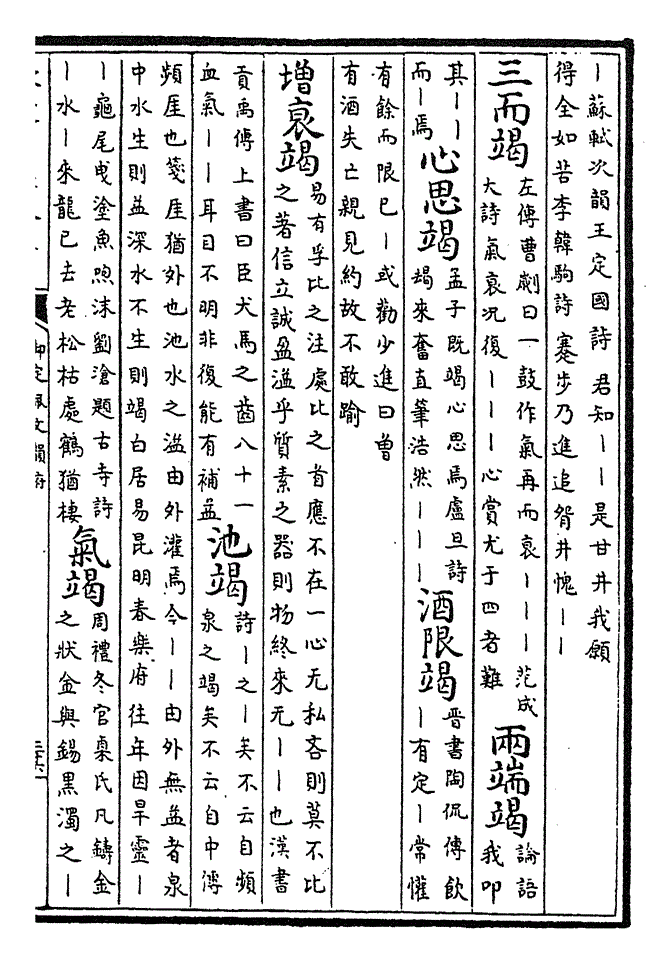 ｜蘇軾次韻王定國詩君知｜｜是甘井我願
得全如苦李韓駒詩蹇步乃進追眢井愧｜｜
三而竭
左傳曹劌曰一鼓作氣再而衰｜｜｜范成
大詩氣衰况復｜｜｜心賞尤于四者難
兩端竭
論語
我叩
其｜｜
而｜焉
心思竭
孟子既竭心思焉盧旦詩
朅來奮直筆浩然｜｜｜
酒限竭
晉書陶侃傳飲
｜有定｜常懽
有餘而限已｜或勸少進曰曽
有酒失亡親見約故不敢踰
增衰竭
易有孚比之注處比之首應不在一心无私吝則莫不比
之著信立誠盈溢乎質素之器則物終來无｜｜也漢書
貢禹傳上書曰臣犬馬之齒八十一
血氣｜｜耳目不明非復能有補益
池竭
詩｜之｜矣不云自頻
泉之竭矣不云自中傳
頻厓也箋厓猶外也池水之溢由外灌焉今｜｜由外無益者泉
中水生則益深水不生則竭白居易昆明春樂府往年因旱靈｜
｜龜尾曵塗魚喣沫劉滄題古寺詩
｜水｜來龍已去老松枯處鶴猶棲
氣竭
周禮冬官㮚氏凡鑄金
之狀金與錫黒濁之｜
御定佩文韻府